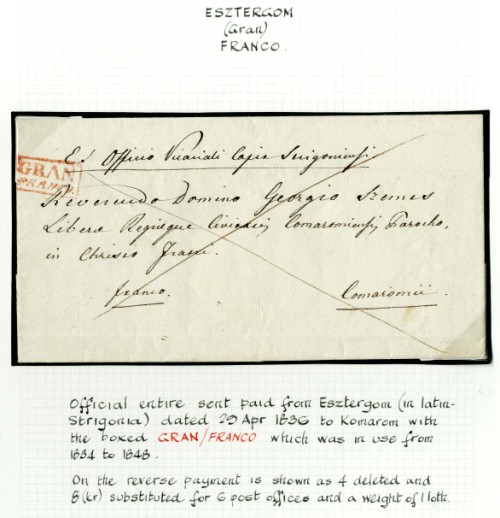 ESZTERGOM
(Gran)
FRANCO.
Ex Officio Vicariali Capis Strigoniensi
GRAN
FRANCO
Reverendo Domino Georgio Szemes
Liberæ Regiæque Civitatis Comaromiensis Parocho,
in Christo Fratri.
franco.
Comaromii
Official entire sent paid from Esztergom (in latin-
Strigonia) dated 29 Apr 1836 to Komarom with
the boxed GRAN/FRANCO which was in use from
1834 to 1848.
On the reverse payment is shown as 4 deleted and
8 (kr) substituted for 6 post offices and a weight of 1 loth.